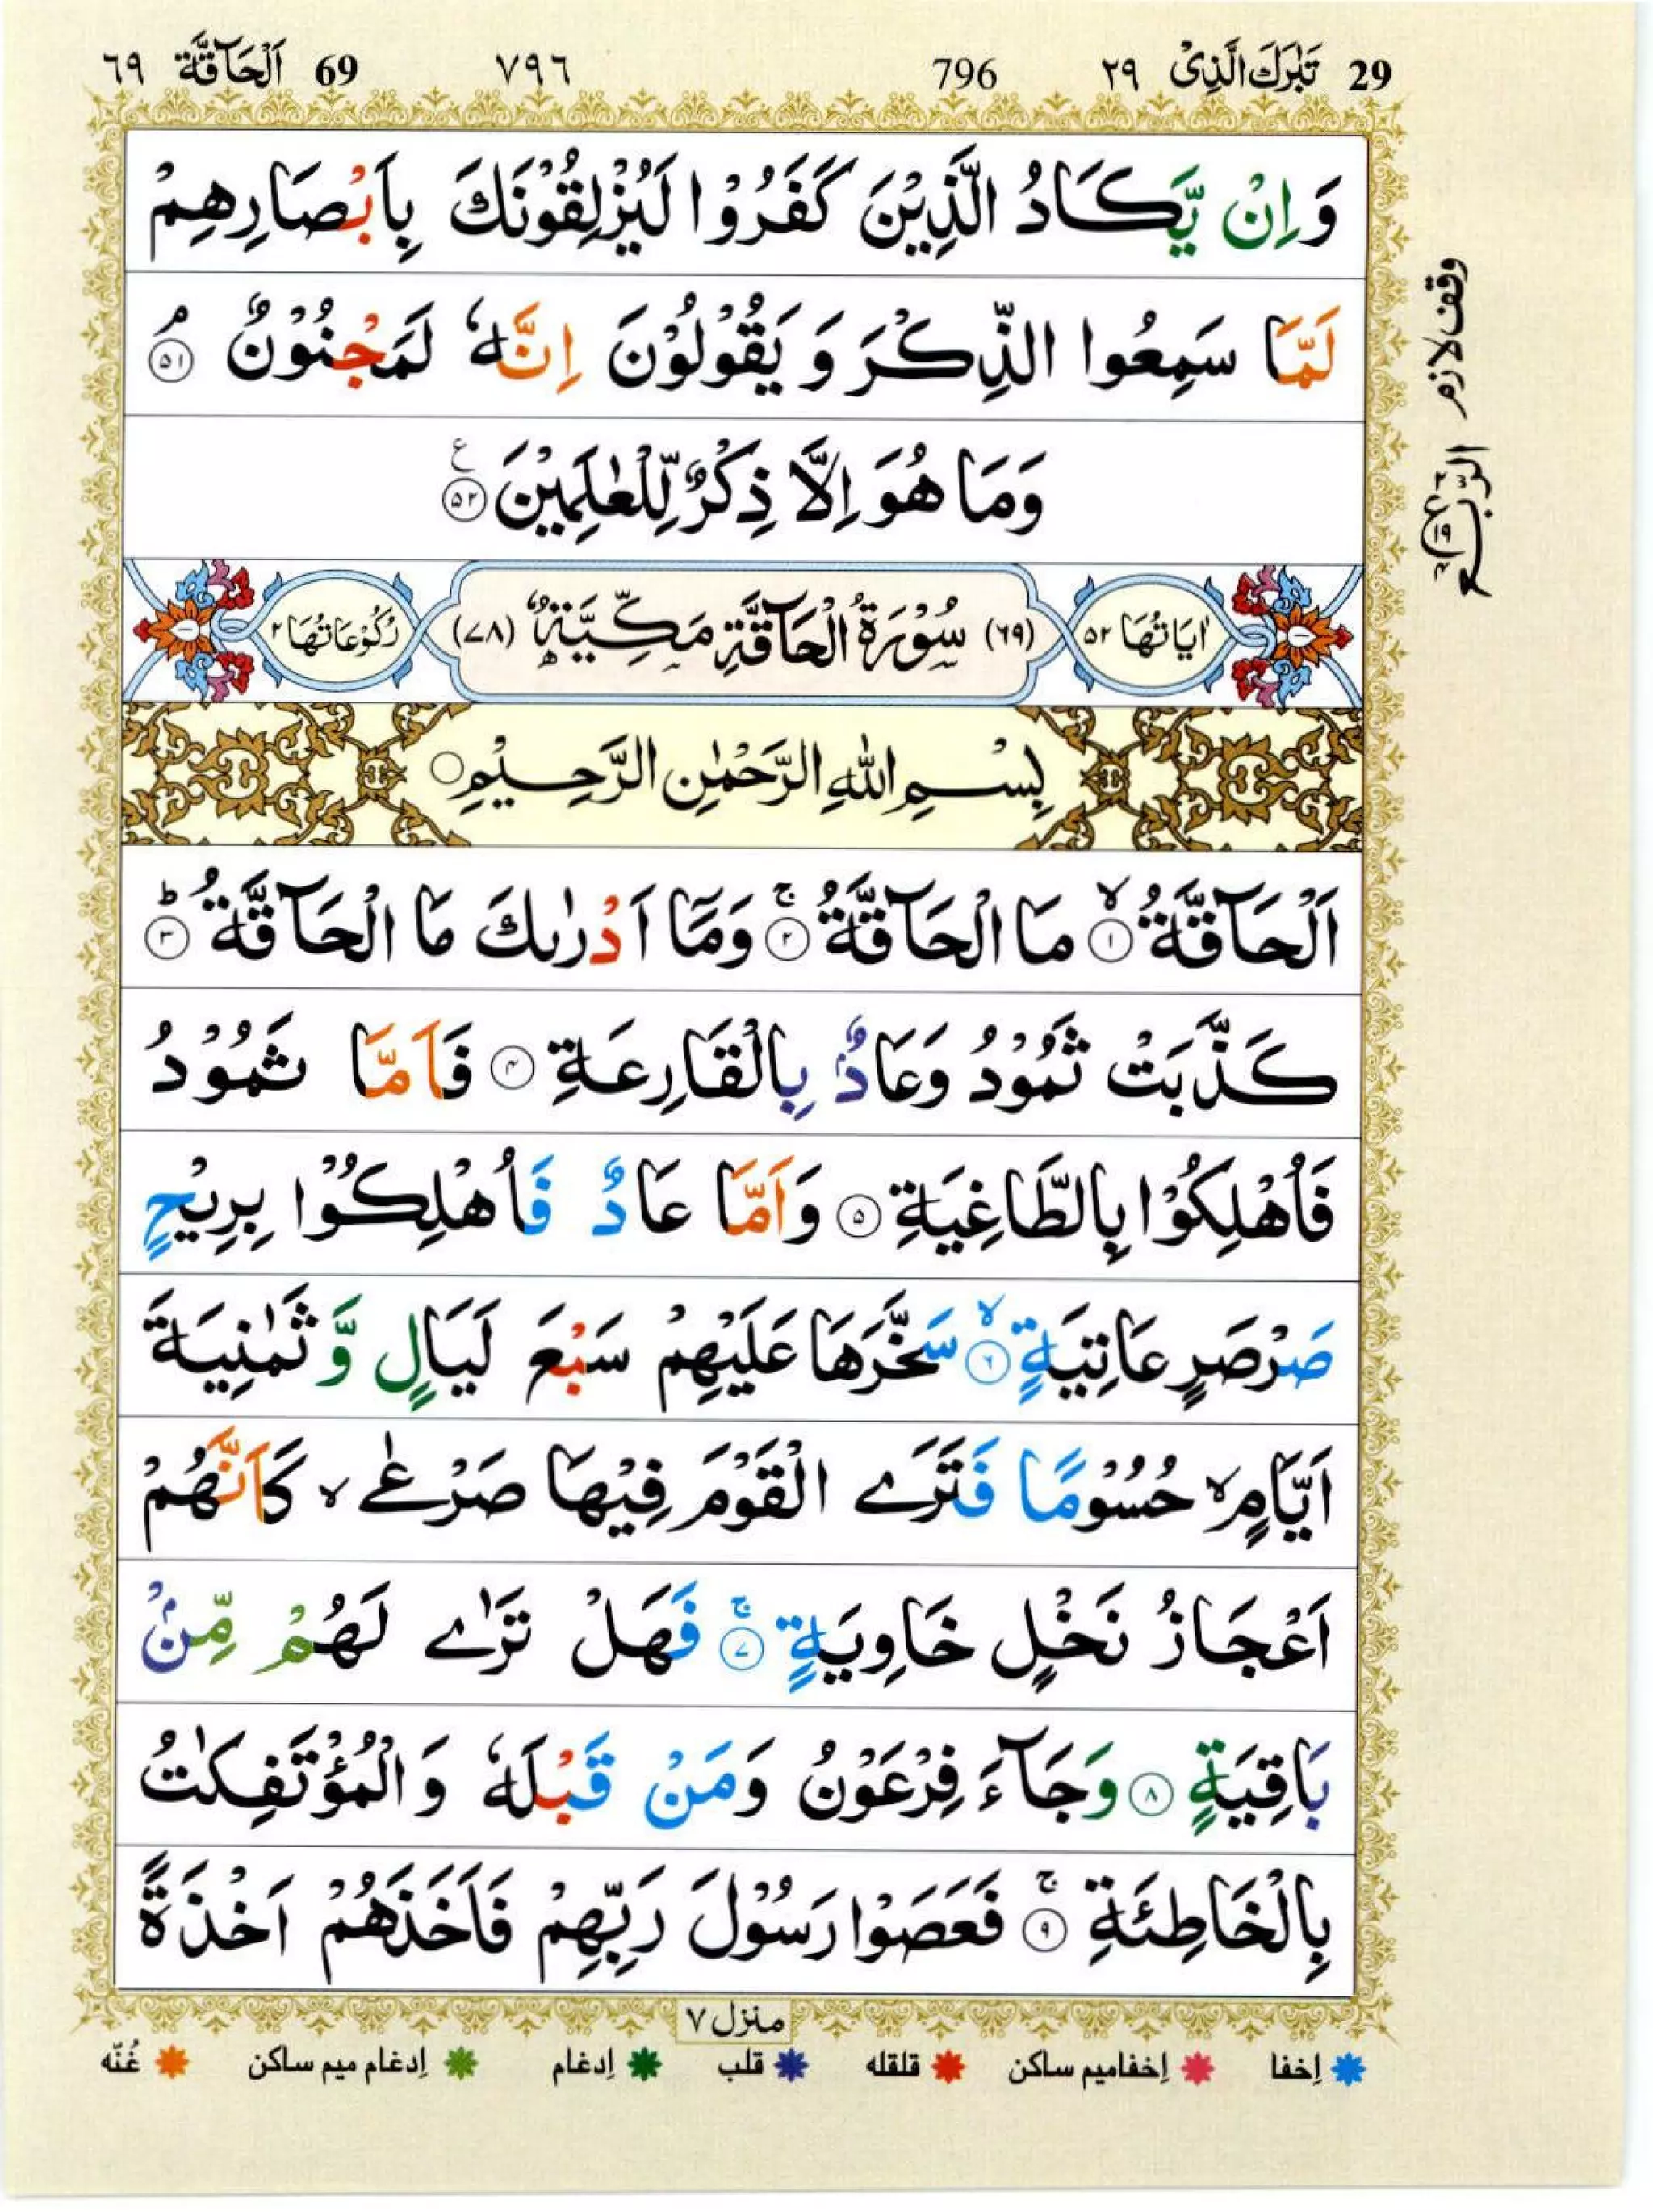 29 تَبٰرَكَ الَّذِىْ ٢٩ 796 ٧٩٦ 69 اَلْحَآقَّة ٦٩
وَاِنْ يَّكَادُ الَّذِيْنَ كَفَرُوْا لَيُزْلِقُوْنَكَ بِاَبْصَارِهِمْ
لَمَّا سَمِعُوا الذِّكْرَ وَ يَقُوْلُوْنَ اِنَّهٗ لَمَجْنُوْنٌ ۘ ۵۱
وَمَا هُوَ اِلَّا ذِكْرٌ لِّلْعٰلَمِيْنَ ۵۲ ع
وقف لازم
الرّبع
اٰيَاتُهَا ۵۲ (٦٩) سُوْرَةُ الْحَآقَّةِ مَكِّيَّةٌ (٧٨) رُكُوْعَاتُهَا ۲
بِسْمِ اللّٰهِ الرَّحْمٰنِ الرَّحِيْمِ
اَلْحَآقَّةُ ۙ ۱ مَا الْحَآقَّةُ ۚ ۲ وَمَاۤ اَدْرٰىكَ مَا الْحَآقَّةُ ؕ ۳
كَذَّبَتْ ثَمُوْدُ وَعَادٌۢ بِالْقَارِعَةِ ۴ فَاَمَّا ثَمُوْدُ
فَاُهْلِكُوْا بِالطَّاغِيَةِ ۵ وَاَمَّا عَادٌ فَاُهْلِكُوْا بِرِيْحٍ
صَرْصَرٍ عَاتِيَةٍ ۙ ۶ سَخَّرَهَا عَلَيْهِمْ سَبْعَ لَيَالٍ وَّ ثَمٰنِيَةَ
اَيَّامٍ ۙ حُسُوْمًا فَتَرَى الْقَوْمَ فِيْهَا صَرْعٰى ۙ كَاَنَّهُمْ
اَعْجَازُ نَخْلٍ خَاوِيَةٍ ۚ ۷ فَهَلْ تَرٰى لَهُمْ مِّنْۢ
بَاقِيَةٍ ۸ وَجَآءَ فِرْعَوْنُ وَمَنْ قَبْلَهٗ وَالْمُؤْتَفِكٰتُ
بِالْخَاطِئَةِ ۚ ۹ فَعَصَوْا رَسُوْلَ رَبِّهِمْ فَاَخَذَهُمْ اَخْذَةً
منزل ٧
اِخفا اِخفاميم ساكن قلقله قلب اِدغام اِدغام ميم ساكن غُنّه